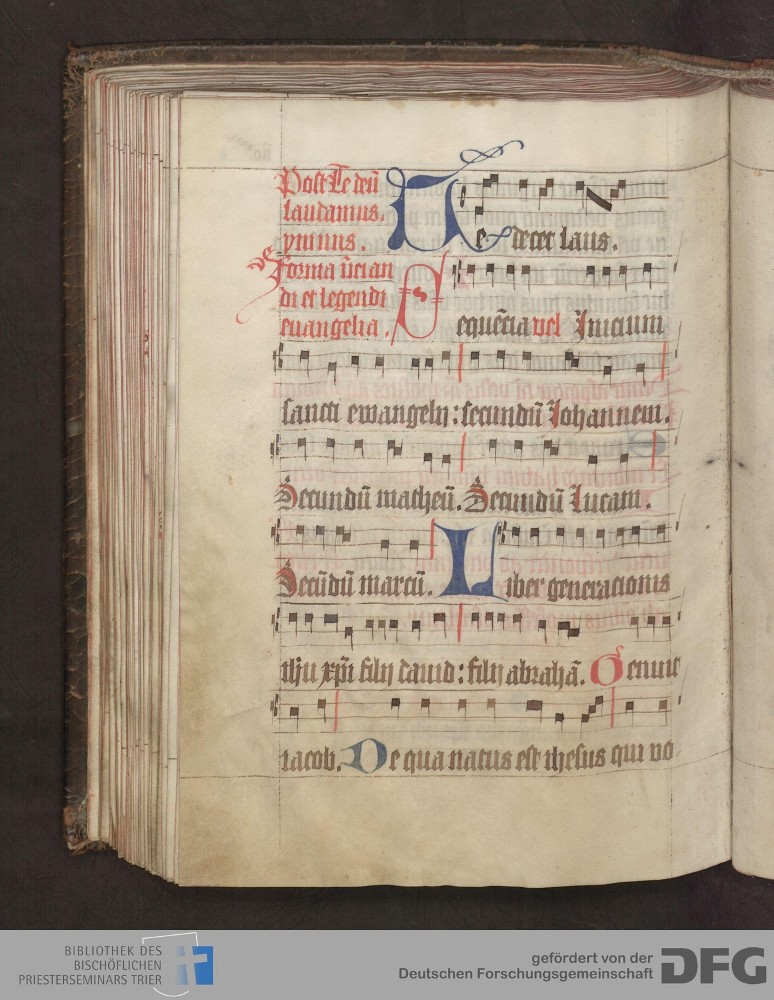 Post Te deū
laudamus,
ymnus.
Te decet laus.
Forma
di et legendi
euangelia.
Sequēcia vel Inicium
sancti ewangelij: secundū Iohannem.
Secundū matheū. Secundū Lucam.
Secūdū marcū. Liber generacionis
ihu xpi filij dauid: filij abrahā. Genuit
iacob. De qua natus est ihesus qui vo
BIBLIOTHEK DES
BISCHÖFLICHEN
PRIESTERSEMINARS TRIER
gefördert von der
Deutschen Forschungsgemeinschaft
DFG